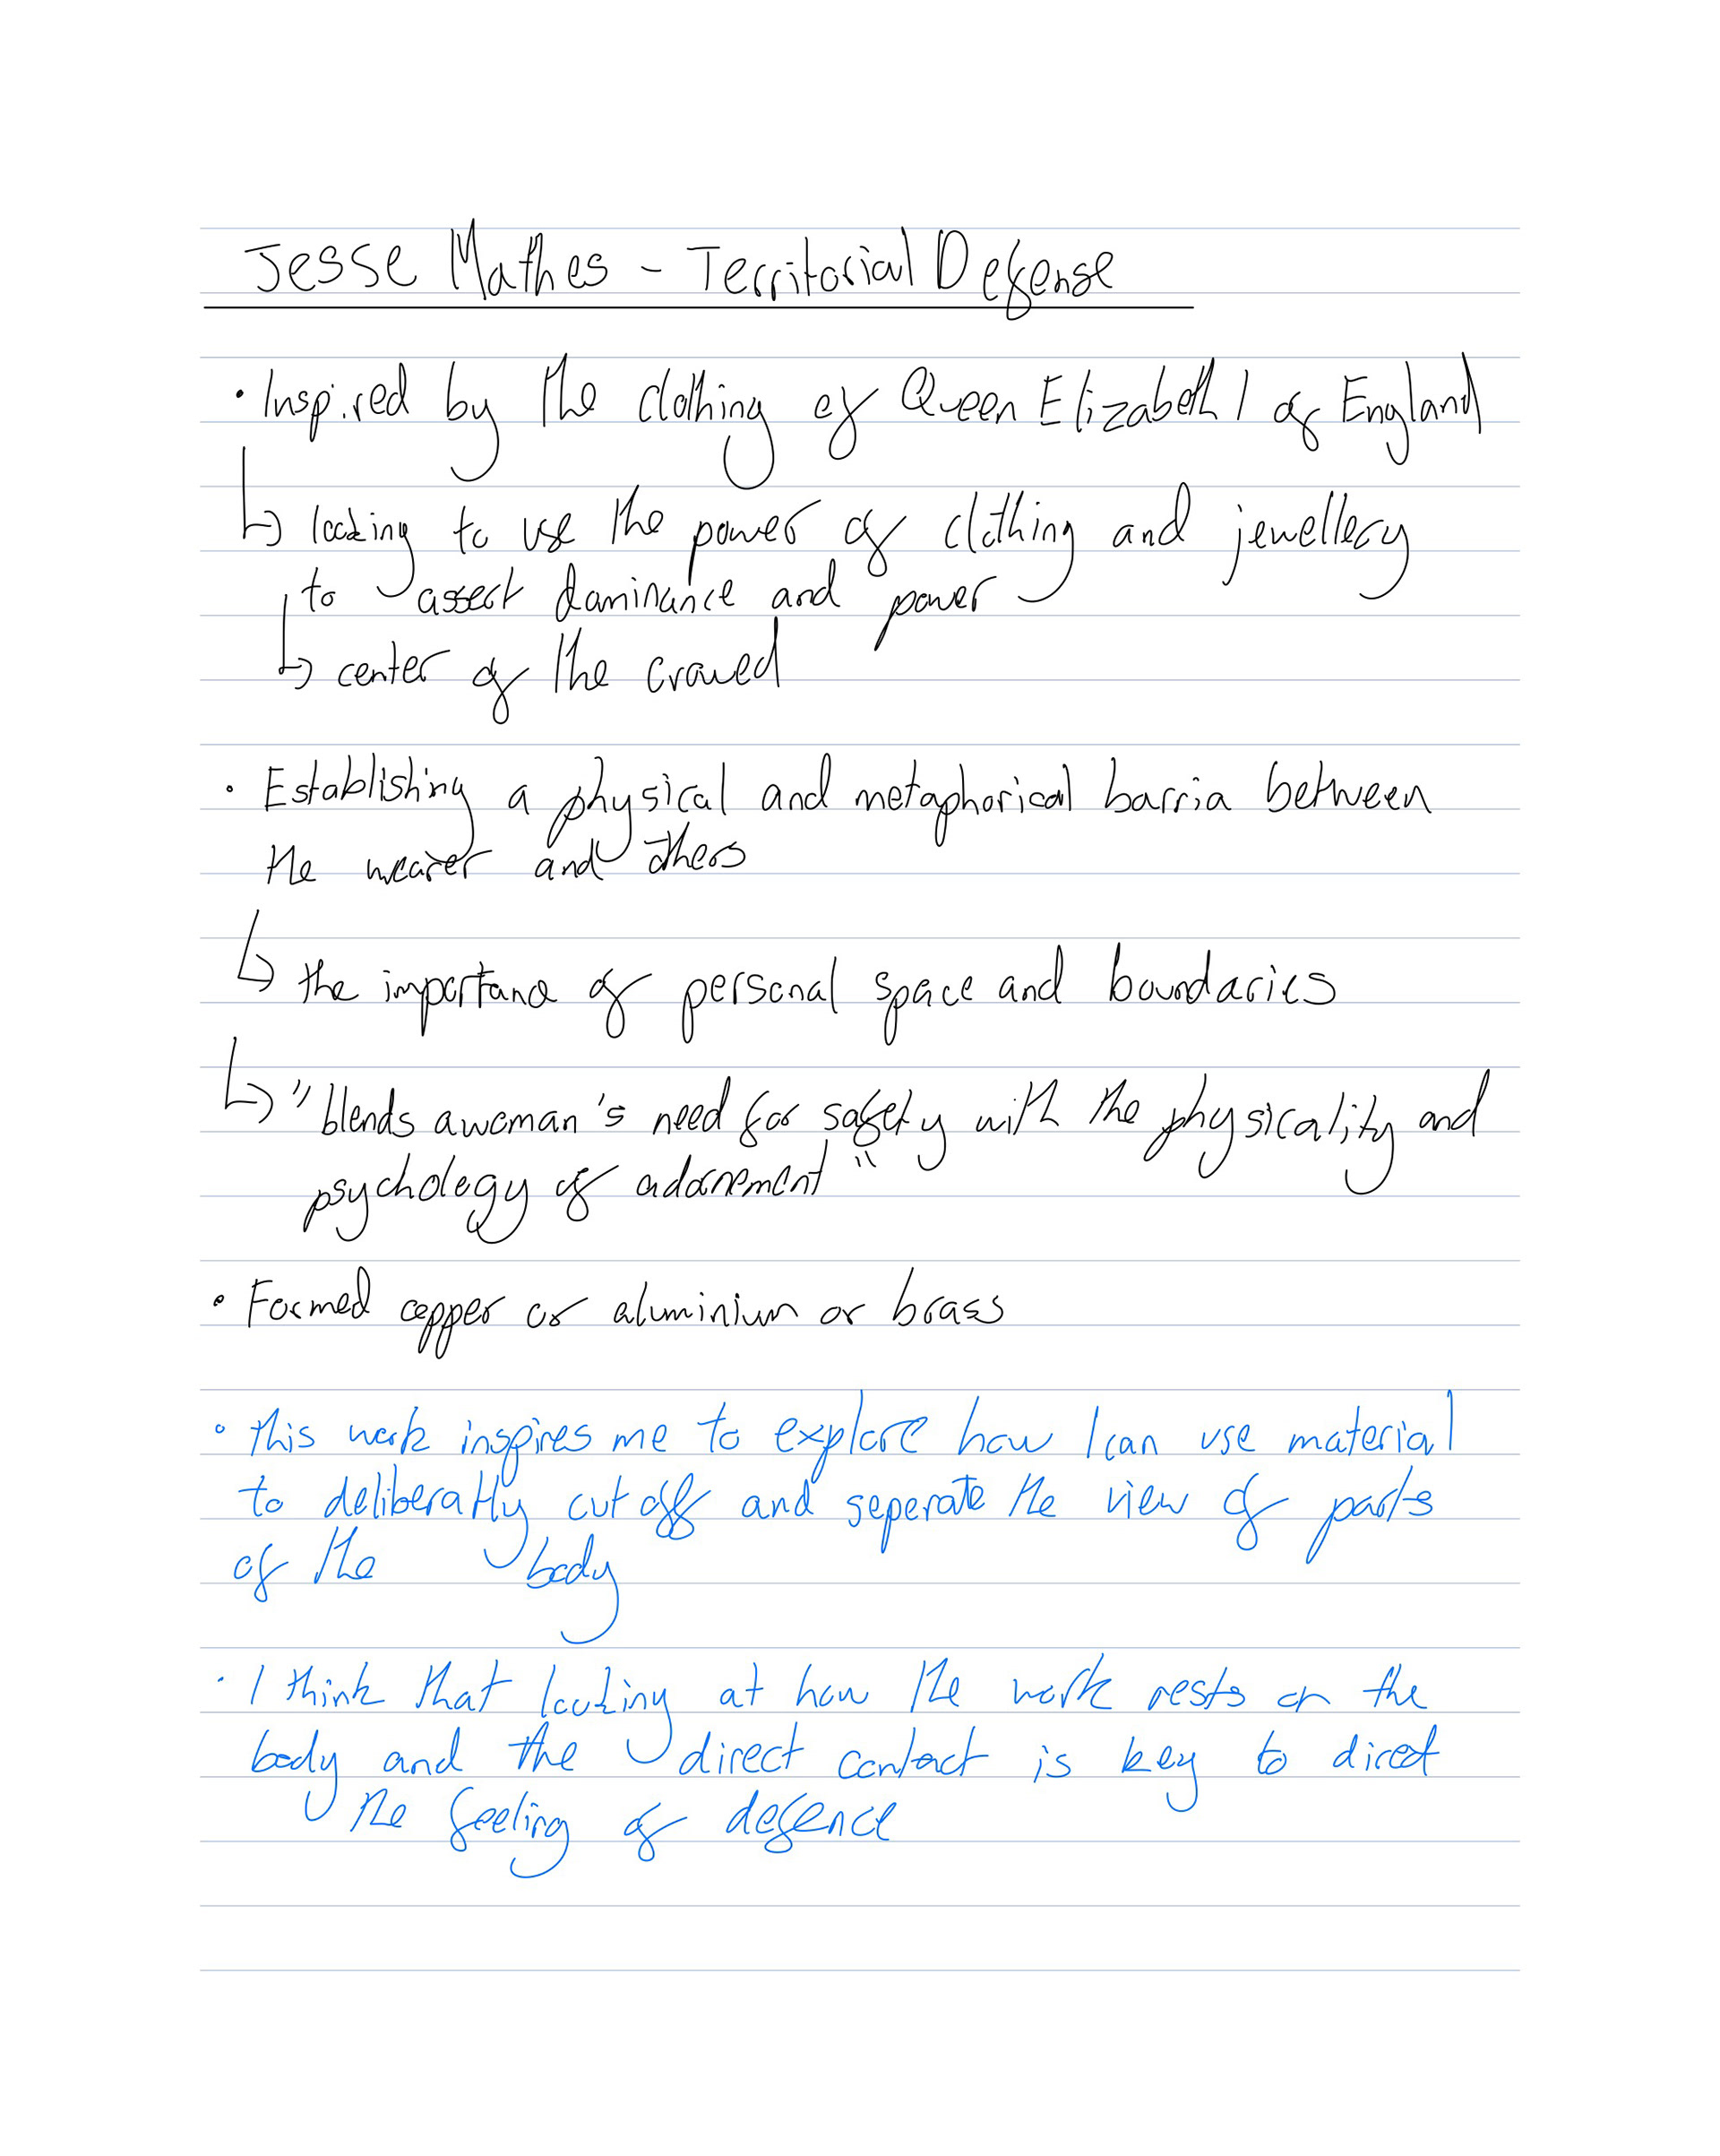 Jesse Mathes - Territorial Defense
• Inspired by the clothing of Queen Elizabeth I of England
↳ looking to use the power of clothing and jewellery
to assert dominance and power
↳ center of the crowed
• Establishing a physical and metaphorical barria between
the wearer and others
↳ the importance of personal space and boundaries
↳ "blends a woman's need for safety with the physicality and
psychology of adornement"
• Formed copper or aluminium or brass
• this work inspires me to explore how I can use material
to deliberatly cut off and seperate the view of parts
of the body
• I think that looking at how the work rests on the
body and the direct contact is key to direct
the feeling of defence